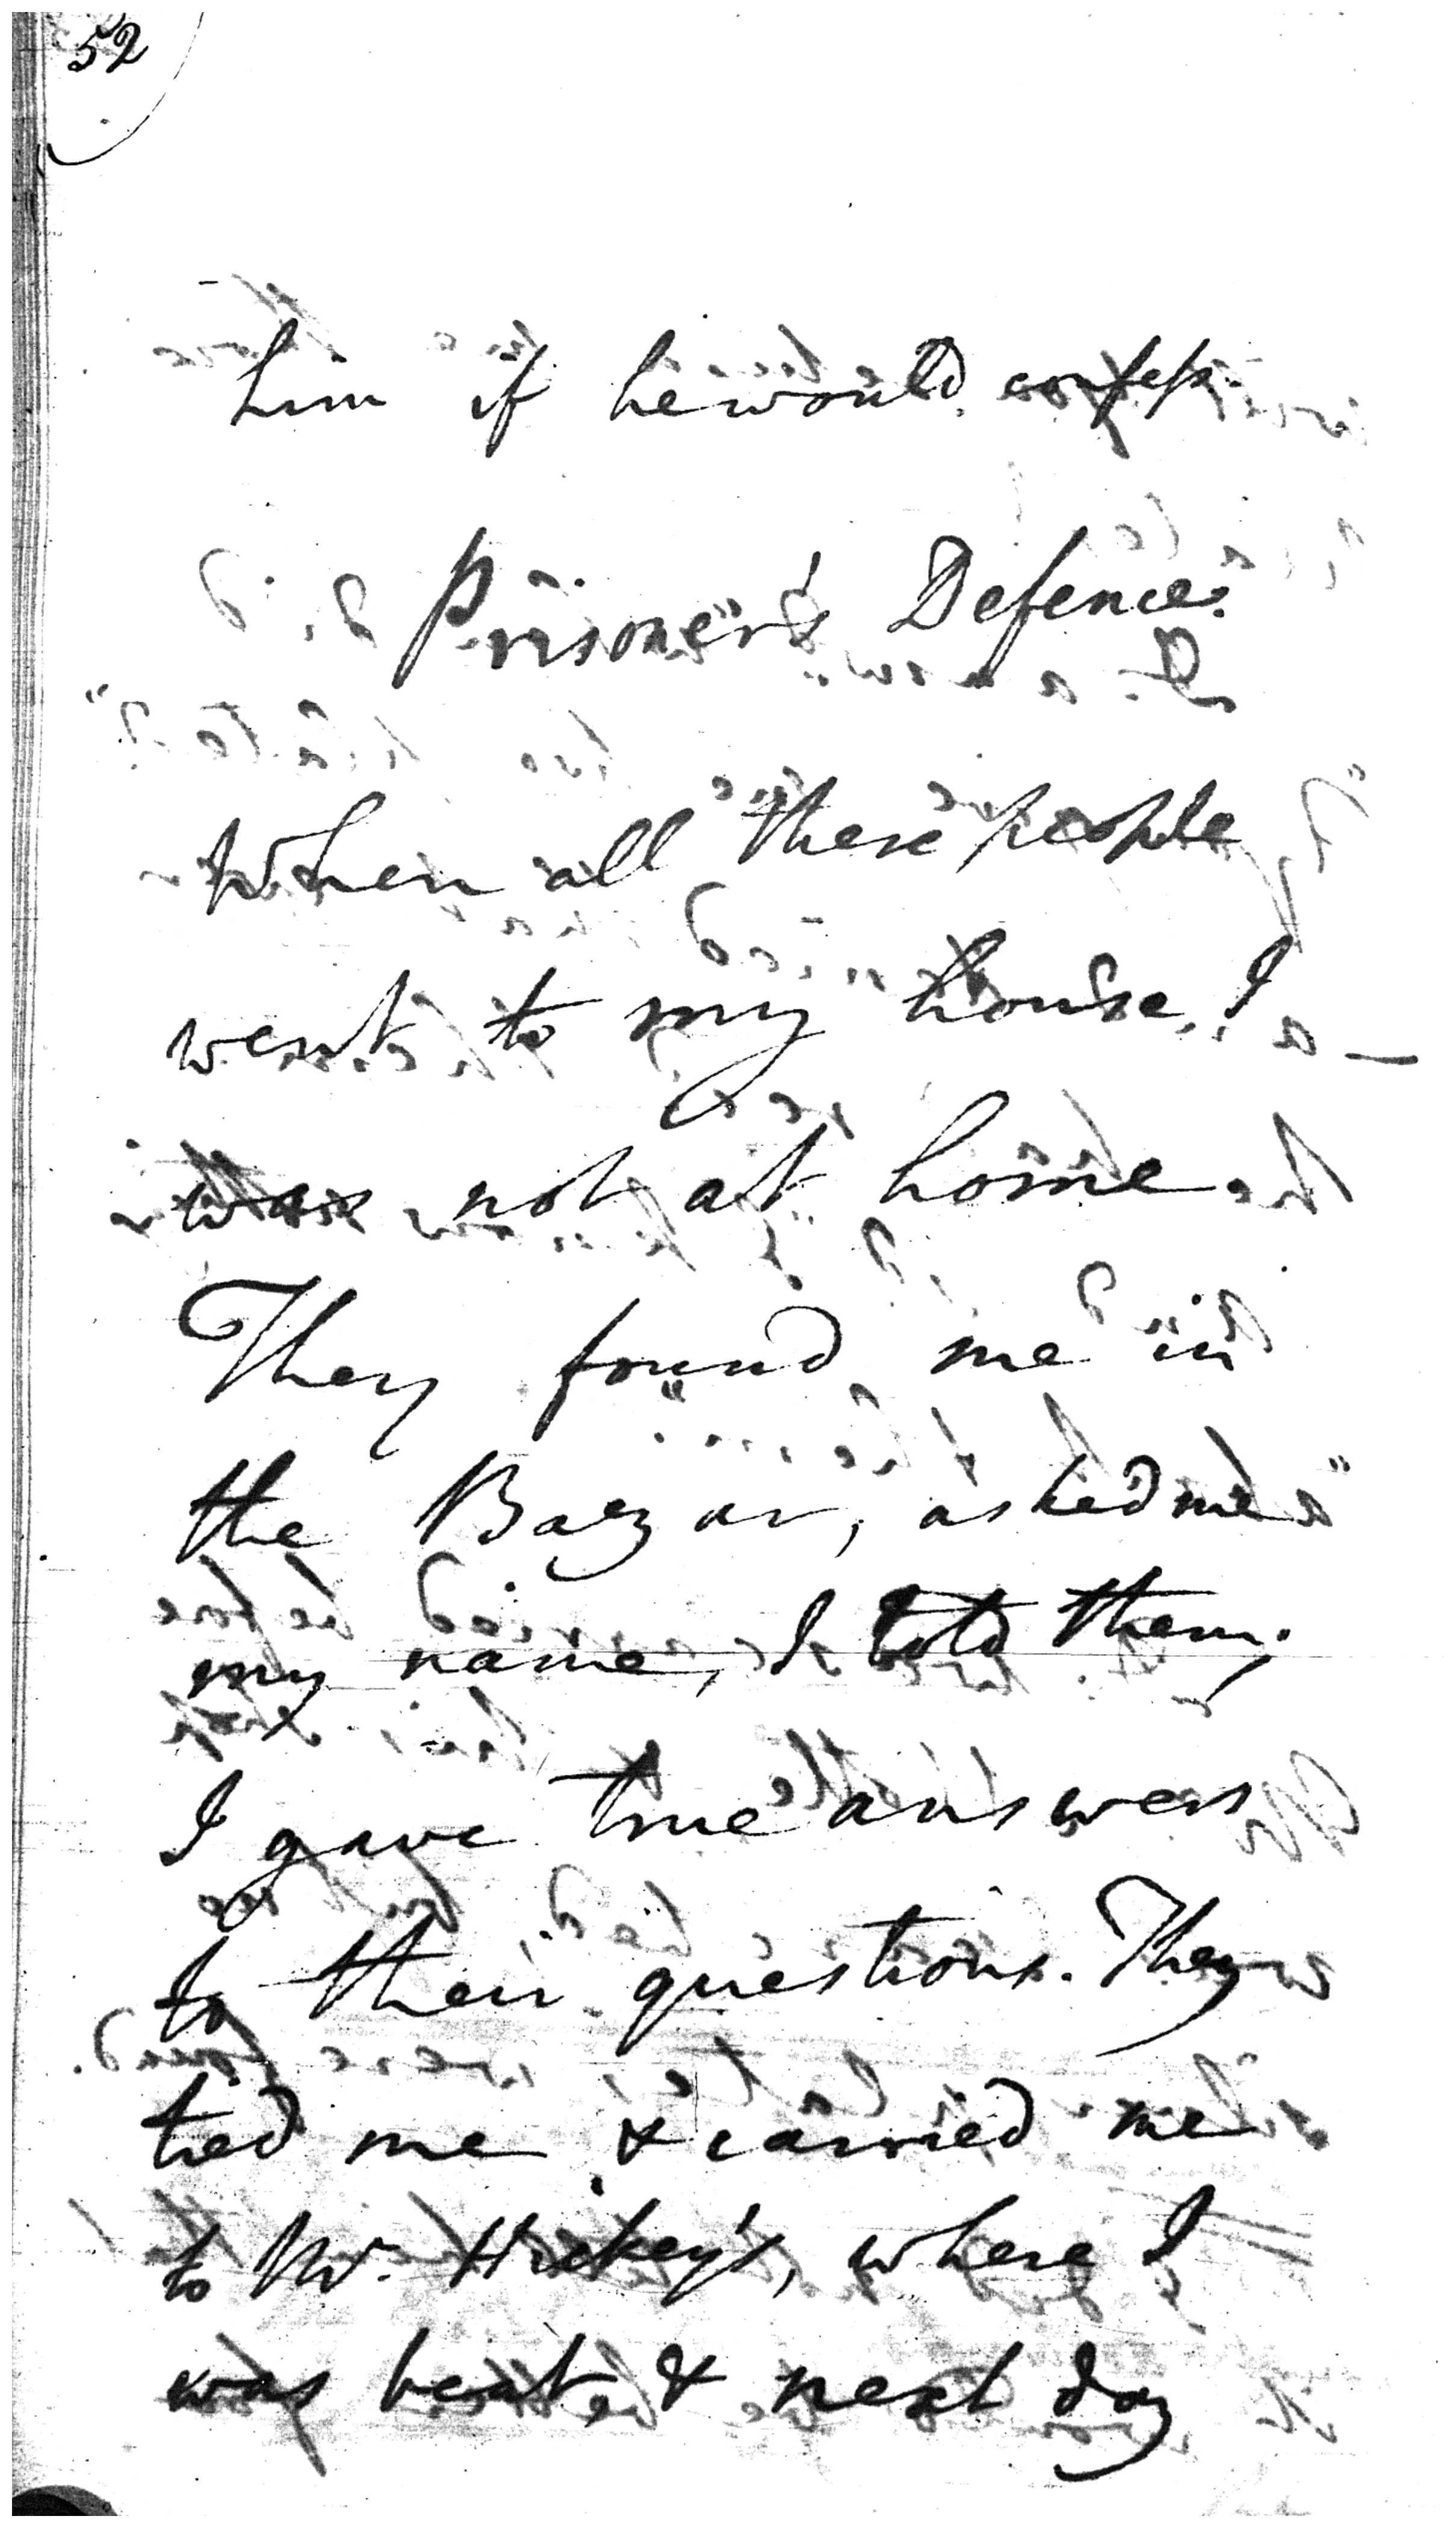 52
him if he would confess.
Prisoner's Defence.
When all these people
went to my house, I
was not at home.
They found me in
the Bazar, asked me
my name, I told them;
I gave true answers
to their questions. They
tied me & carried me
to Mr. Hickey's, where I
was beat, & next day